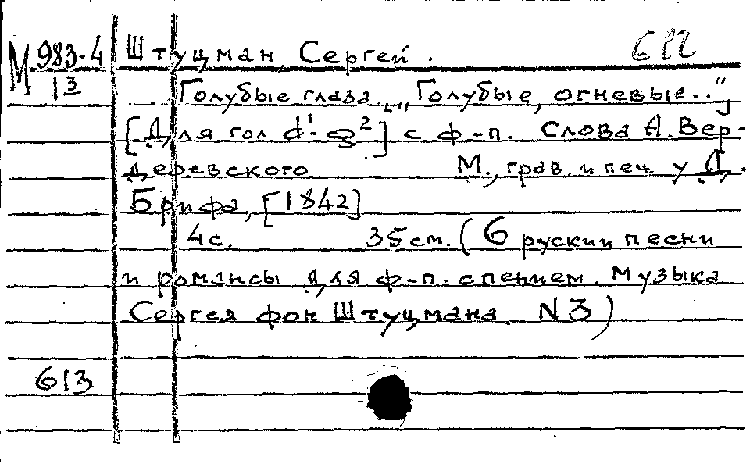 М 983-4 Штуцман, Сергей. 612
13 Голубые глаза „„Голубые, огневые.."
[Для гол d¹-g²] с ф-п. Слова А. Вер-
деревского М., грав. и печ. у Д.
Брифа, [1842]
4 с. 35 см. (6 руских песни
и романсы для ф-п. с пением. Музыка
Сергея фон Штуцмана. N 3)
613